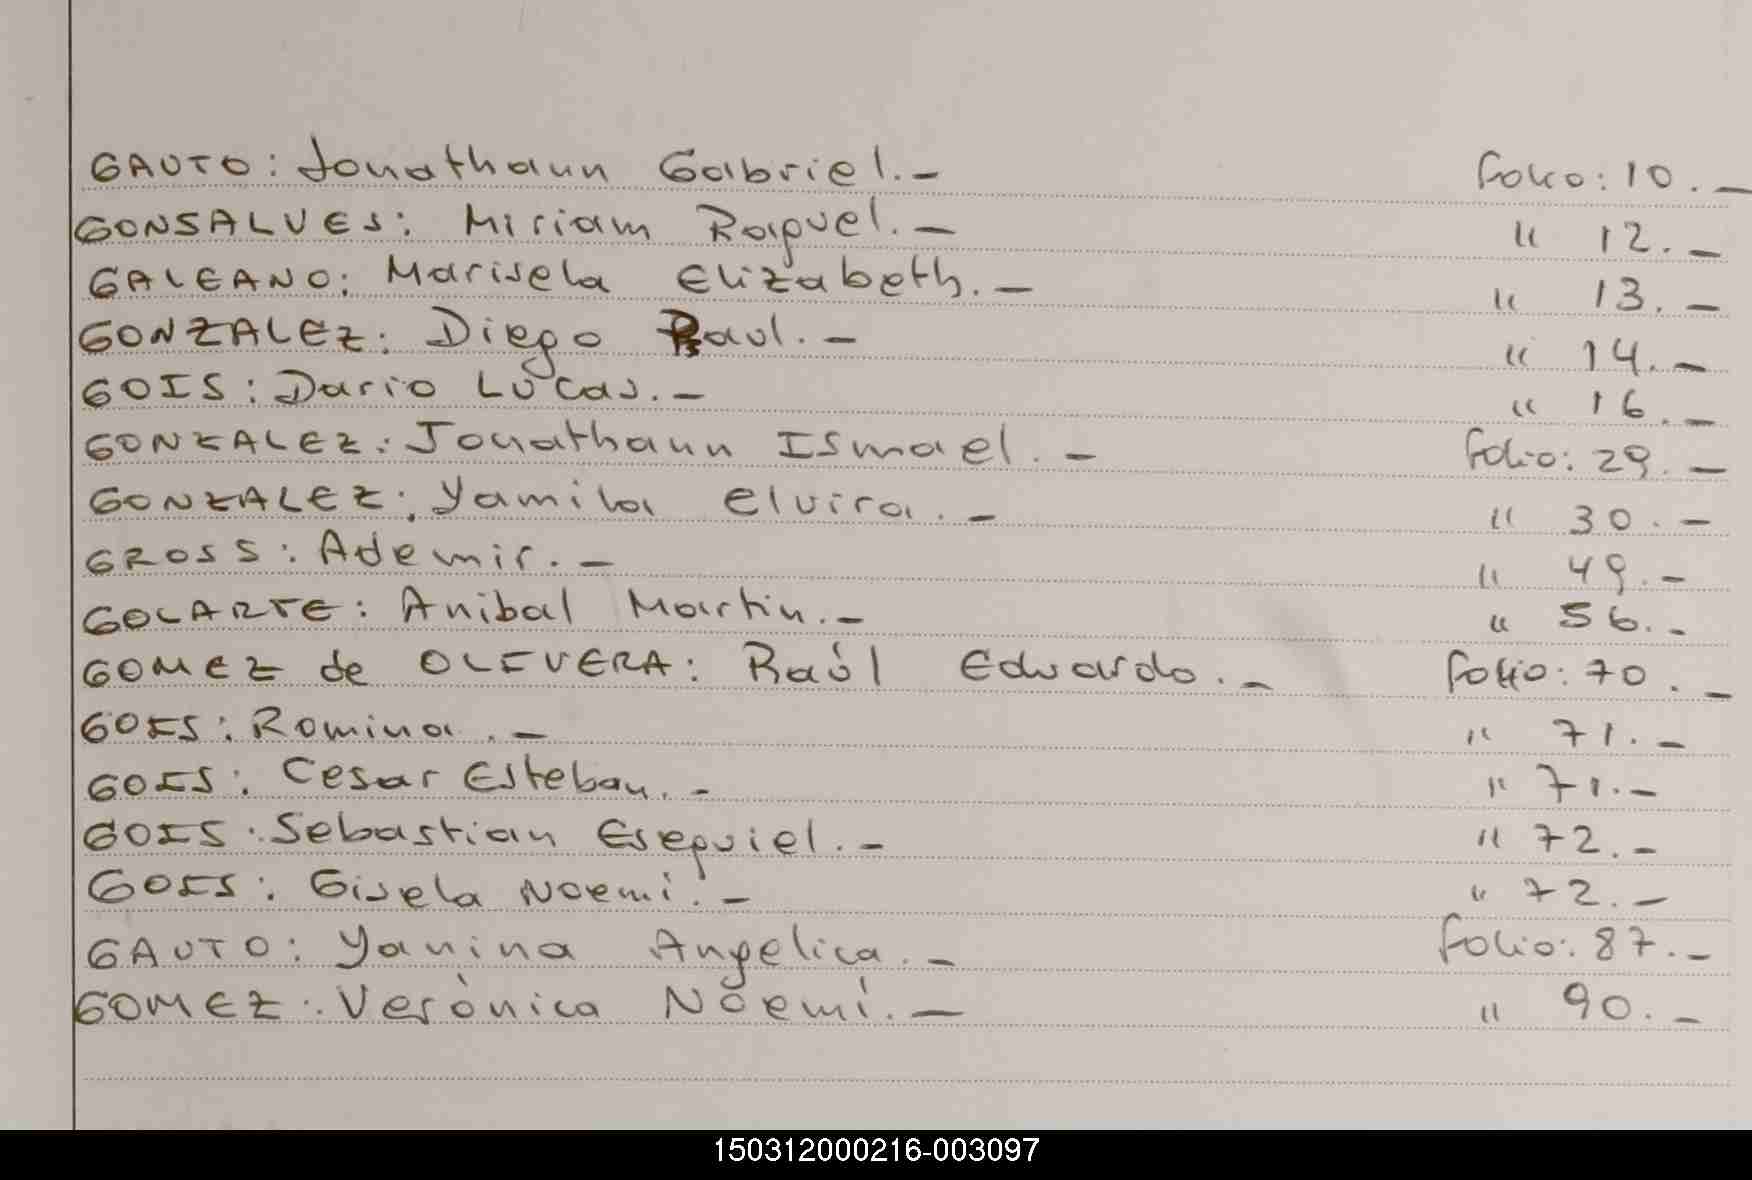 GAUTO: Jonathann Gabriel.- Folio: 10.-
GONSALVES: Miriam Raquel.- " 12.-
GALEANO: Marisela Elizabeth.- " 13.-
GONZALEZ: Diego Raul.- " 14.-
GOIS: Dario Lucas.- " 16.-
GONZALEZ: Jonathann Ismael.- Folio: 29.-
GONZALEZ: Yamila Elvira.- " 30.-
GROSS: Ademir.- " 49.-
GOLARTE: Anibal Martin.- " 56.-
GOMEZ de OLIVERA: Raúl Eduardo.- Folio: 70.-
GOIS: Romina.- " 71.-
GOIS: Cesar Esteban.- " 71.-
GOIS: Sebastian Esequiel.- " 72.-
GOIS: Gisela Noemi.- " 72.-
GAUTO: Yanina Angelica.- Folio: 87.-
GOMEZ: Verónica Noemí.- " 90.-
150312000216-003097